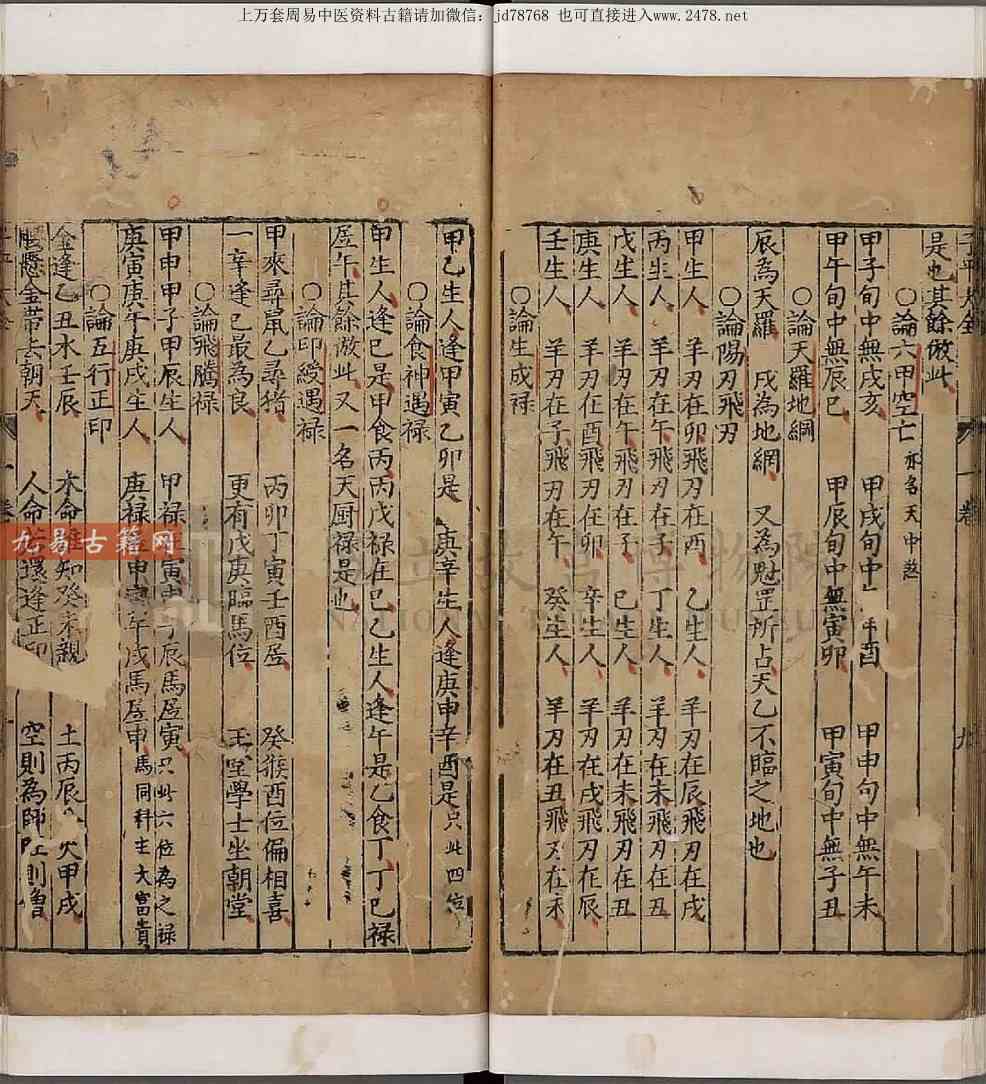 上万套周易中医资料古籍请加微信：jd78768 也可直接进入www.2478.net
子平大全 一卷 九
是也其餘倣此
○論六甲空亡 亦名天中煞
甲子旬中無戌亥 甲戌旬中 酉 甲申旬中無午未
甲午旬中無辰巳 甲辰旬中無寅卯 甲寅旬中無子丑
○論天羅地網
辰為天羅 戌為地網 又為魁罡所占天乙不臨之地也
○論陽刃飛刃
甲生人 羊刃在卯飛刃在酉 乙生人 羊刃在辰飛刃在戌
丙生人 羊刃在午飛刃在子 丁生人 羊刃在未飛刃在丑
戊生人 羊刃在午飛刃在子 巳生人 羊刃在未飛刃在丑
庚生人 羊刃在酉飛刃在卯 辛生人 羊刃在戌飛刃在辰
壬生人 羊刃在子飛刃在午 癸生人 羊刃在丑飛刃在未
○論生成禄
甲乙生人逢甲寅乙卯是 庚辛生人逢庚申辛酉是只此四位
○論食神遇禄
甲生人逢巳是甲食丙丙戊禄在巳乙生人逢午是乙食丁丁巳禄
居午其餘倣此又一名天厨禄是也
○論印綬遇禄
甲來尋鼠乙尋猪 丙卯丁寅壬酉居 癸猴酉位偏相喜
一辛逢巳最為良 更有戊庚臨馬位 玉堂學士坐朝堂
○論飛騰禄
甲申甲子甲辰生人 甲禄 寅申子辰馬居寅 只此六位為之禄
庚寅庚午庚戌生人 庚禄 申寅午戌馬居申 馬同科主大富貴
○論五行正印
金逢乙丑水壬辰 木命 知癸未親 土丙辰 火甲戌
腰懸金帶去朝天 人命 還逢正印 空則為師 則僧
九易古籍网
NATIONAL